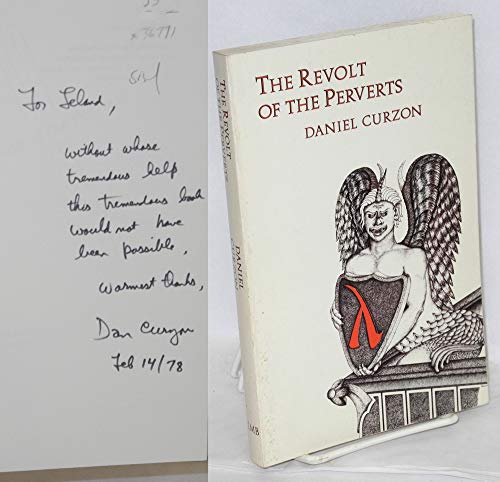 x36771
For Leland,
without whose
tremendous help
this tremendous book
would not have
been possible,
warmest thanks,
Dan Curzon
Feb 14/78
THE REVOLT
OF THE PERVERTS
DANIEL CURZON
λ
THE REVOLT
DANIEL
LMB